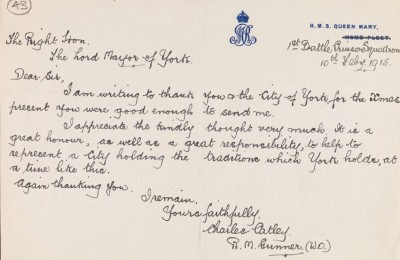 A3
H.M.S. QUEEN MARY,
HOME FLEET.
1st Battle Cruiser Squadron
10th Feby. 1915.
The Right Hon.
The Lord Mayor of York.
Dear Sir,
I am writing to thank you & the City of York, for the Xmas
present you were good enough to send me.
I appreciate the kindly thought very much. It is a
great honour, as well as a great responsibility, to help to
represent a City holding the traditions which York holds, at
a time like this.
Again thanking you.
I remain.
Yours faithfully.
Charles Catley.
R.M. Gunner (W.O.)